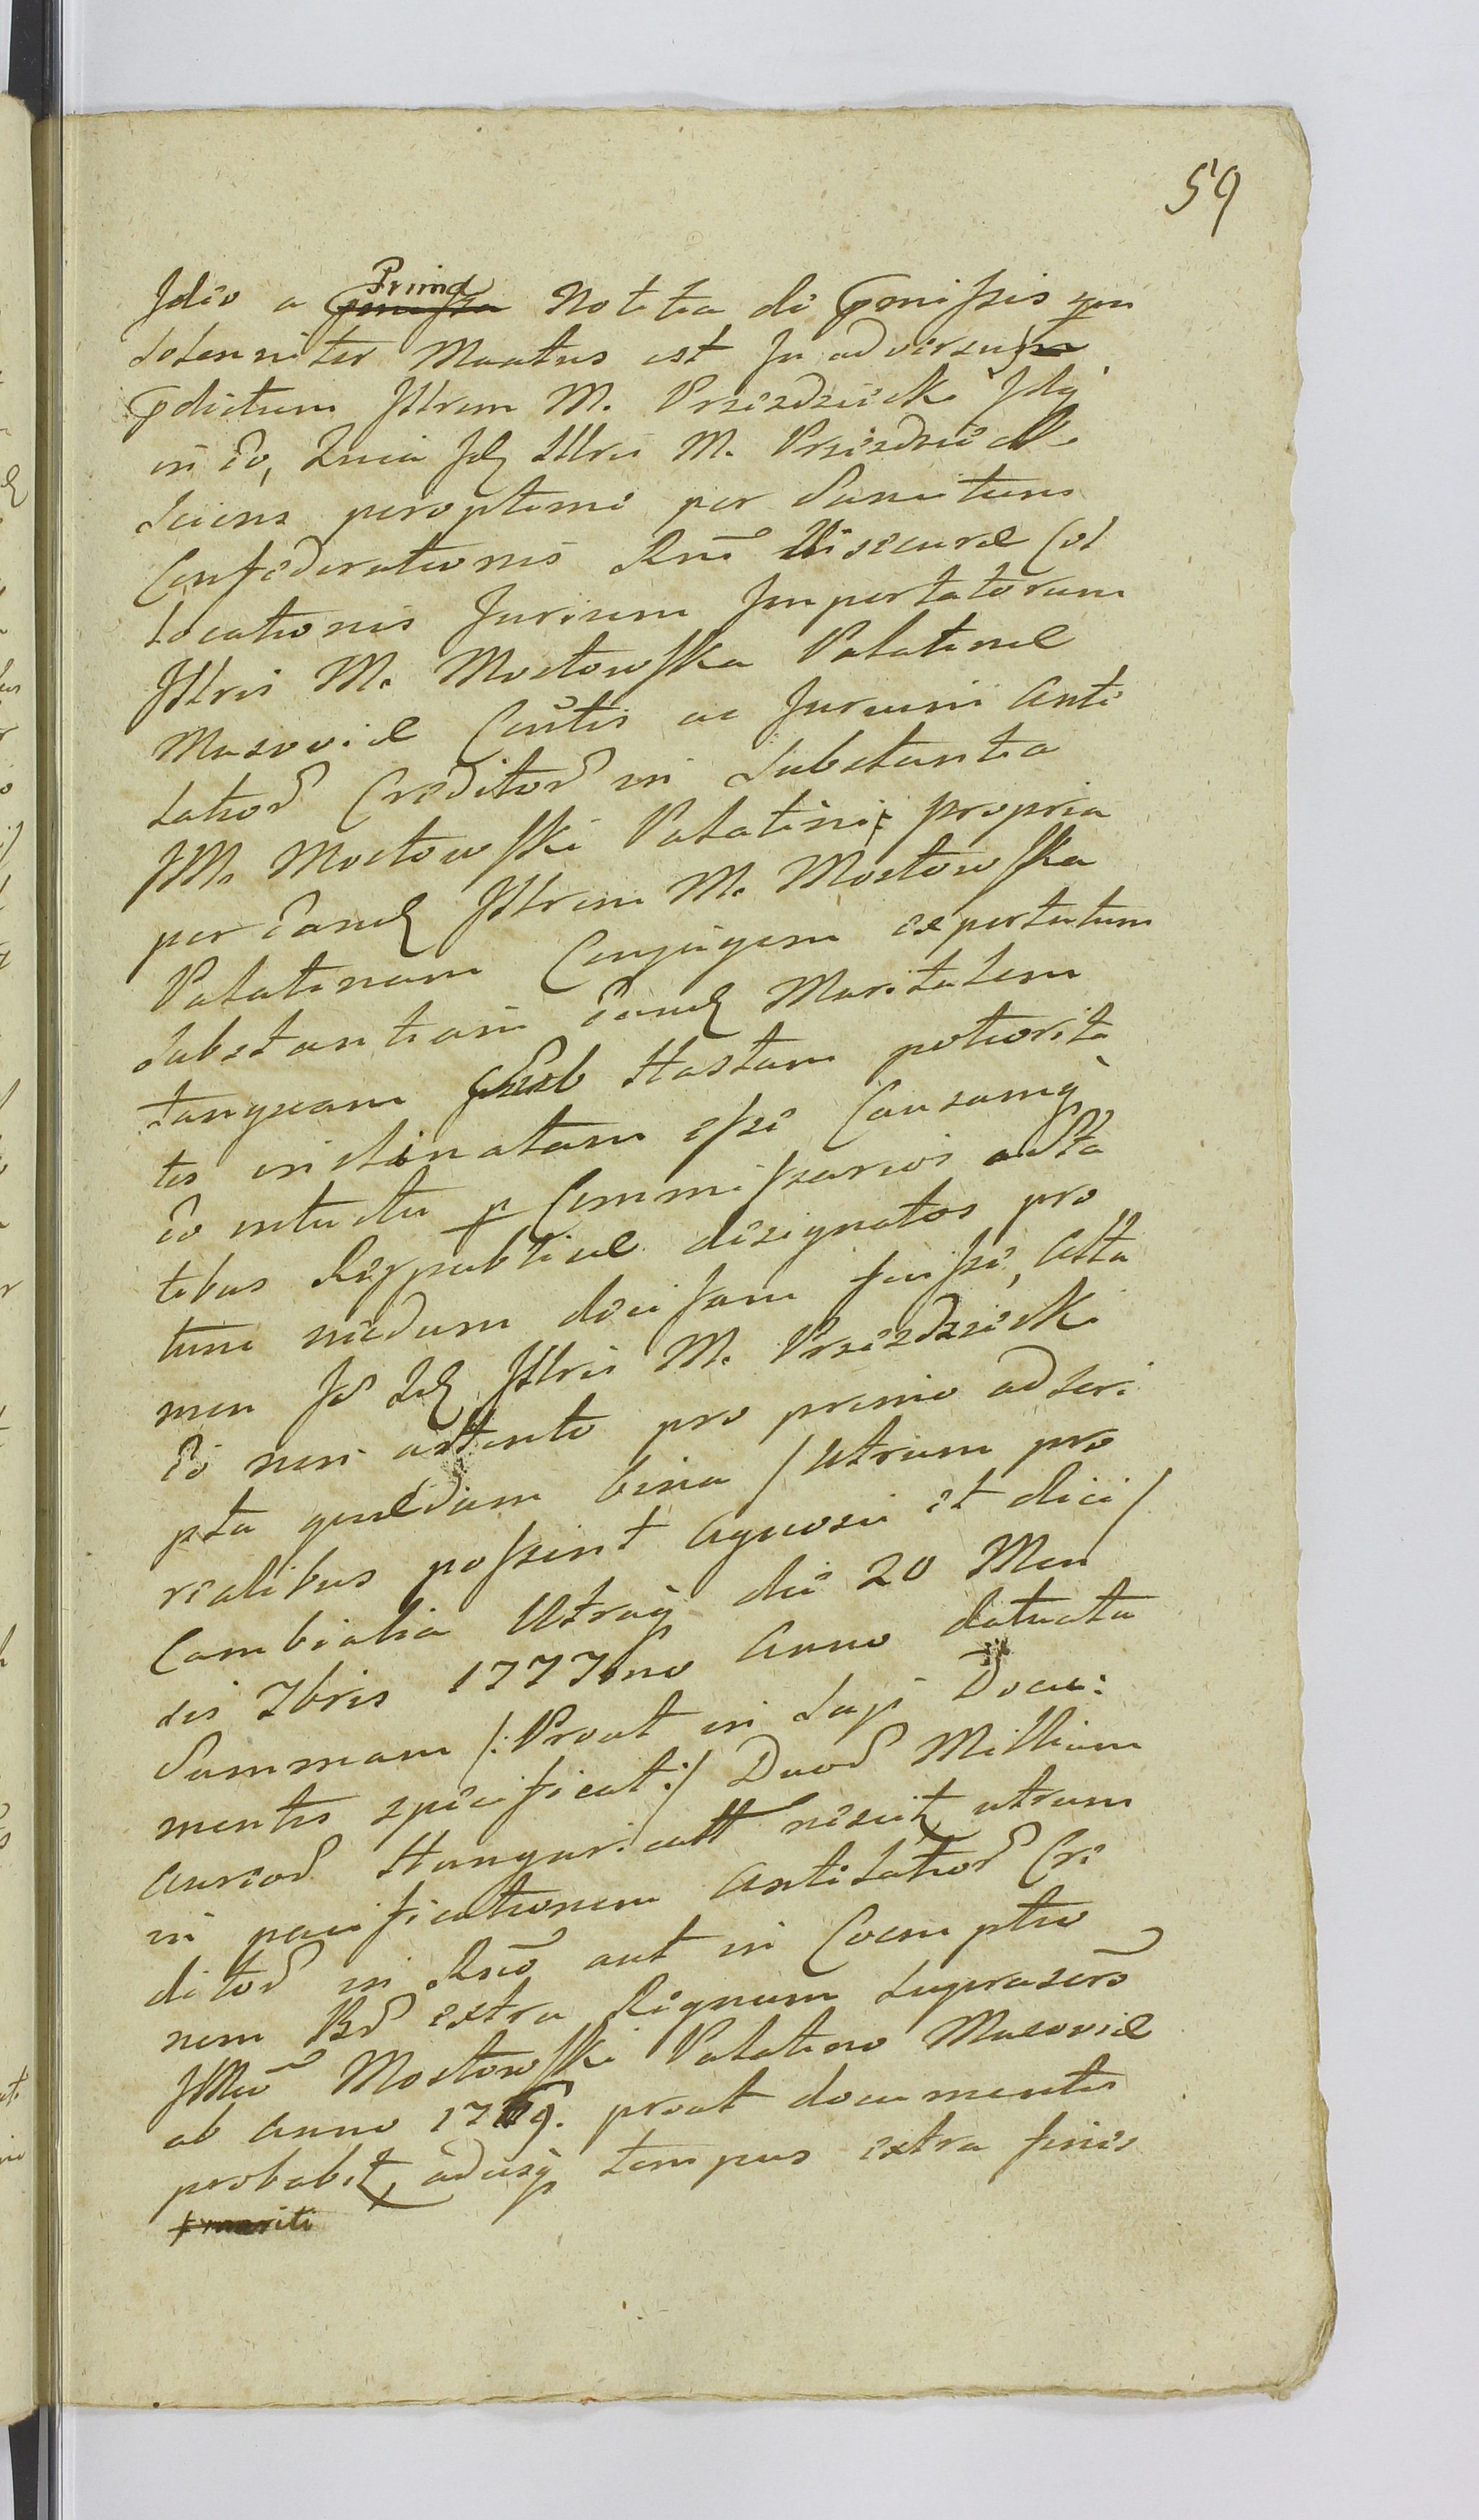 59
Ideo a Prima Notitia de pmissis qm
Solenniter Maatus est In adversum
pdictum Illrem M. Przezdziecki Idq
in eo, Quia Idem Illris M. Przezdziecki
Sciens peroptime per Sancitum
Confederationis Rni Viscerae Col
locationis Jurium Importatorum
Illris M. Mostowska Palatinae
Masoviae Centis ac Jurium Anti
latior Creditor in Substantia
IM. Mostowski Palatini propria
per Eandem Illrem M. Mostowska
Palatinam Conjugem expertutum
Substantiam Eandem Maritalem
tanquam Sub Hastam potiorita
tis inclinatam esse Causamq
eo intuitu p Commissarios adsta
tibus Reipublicae designatos pro
tunc nedum decisam fuisse, Atta
men Idem Illris M. Przezdziecki
Eo non attento pro primo adscri
pta quaedam bina / Utrum pro
realibus possint Agnosci et dici /
Cambialia Utraq die 20 Men
sis 7bris 1777mo Anno datuata
Summam /: Prout in Sup Docu:
mentis specificat :/ Duor Millium
Aureor Hungaricall nescit utrum
in pacificationem Antilatior Cre
ditor in Rno aut in Coemptio
nem Br extra Regnum suprascro
IMco Mostowski Palatino Masoviae
ab Anno 1769. prout documentis
probabit, adusq tempus extra fines